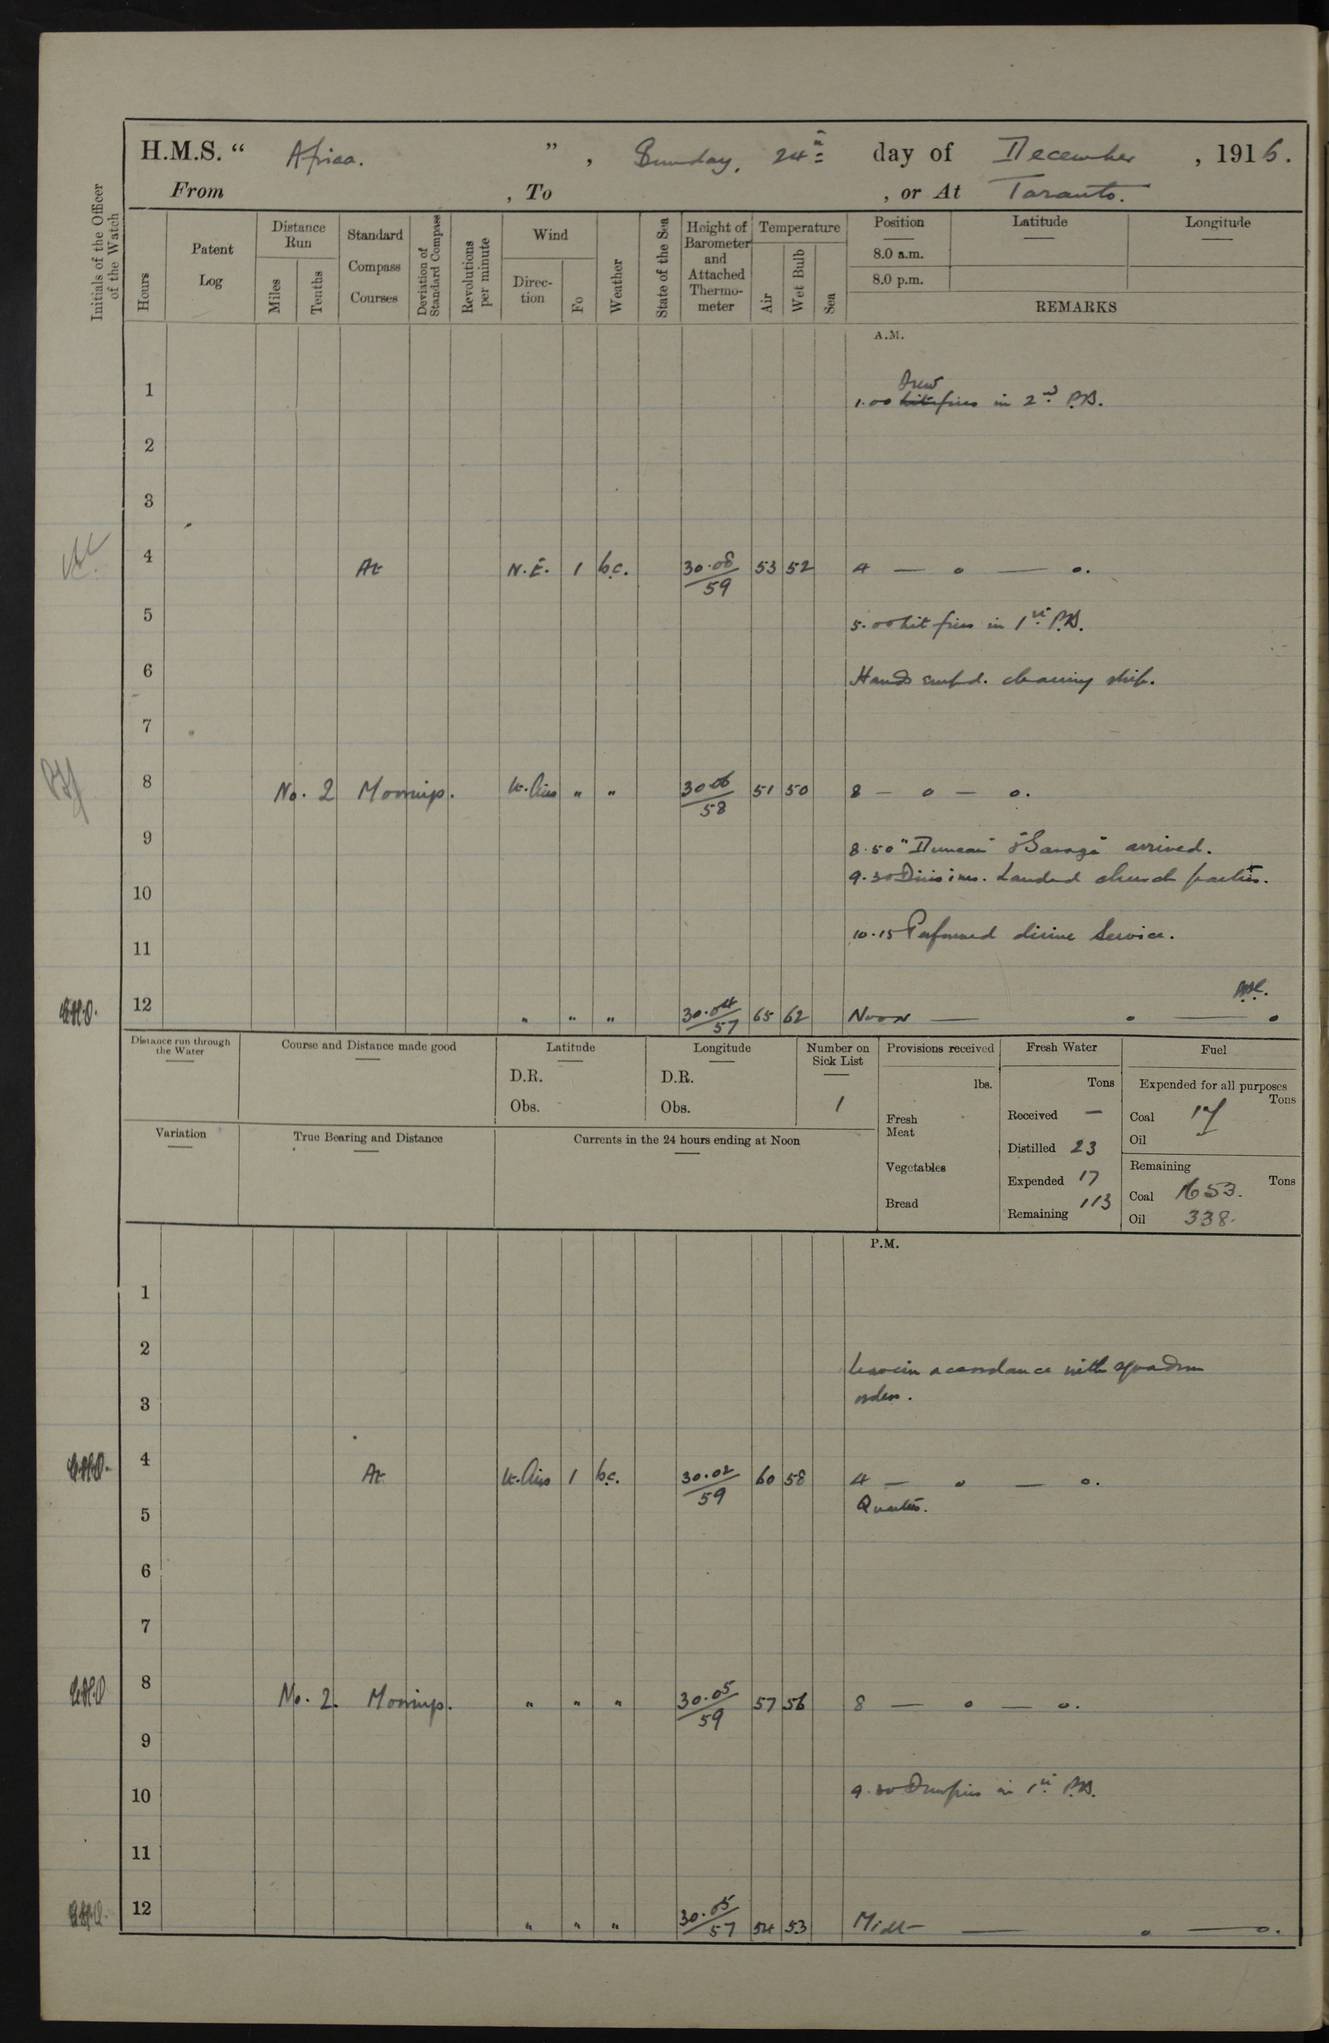 H.M.S. “ Africa. ” , Sunday, 24th day of December , 1916.
From , To , or At Taranto.
Initials of the Officer of the Watch
Hours
Patent Log
Distance Run
Miles
Tenths
Standard Compass Courses
Deviation of Standard Compass
Revolutions per minute
Wind
Direc-tion
Fo
Weather
State of the Sea
Height of Barometer and Attached Thermo-meter
Temperature
Air
Wet Bulb
Sea
Position Latitude Longitude
8.0 a.m.
8.0 p.m.
REMARKS
A.M.
1 1.00 Drew fires in 2nd P.B.
2
3
4 At N.E. 1 b.c. 30.08/59 53 52 4 — o — o.
5 5.00 Lit fires in 1st P.B.
6 Hands empd. cleaning ship.
7
8 No. 2 Moorings. Lt. Airs " " 30.06/58 51 50 8 — o — o.
9 8.50 "Duncan" & "Savage" arrived.
9.30 Divisions. Landed church parties.
10
10.15 Performed divine Service.
11
12 " " " 30.04/57 65 62 Noon — o — o
Distance run through the Water
Course and Distance made good
Latitude
D.R.
Obs.
Longitude
D.R.
Obs.
Number on Sick List
1
Provisions received
lbs.
Fresh Meat
Vegetables
Bread
Fresh Water
Tons
Received —
Distilled 23
Expended 17
Remaining 113
Fuel
Expended for all purposes
Tons
Coal 17
Oil
Remaining
Tons
Coal 1653.
Oil 338.
Variation
True Bearing and Distance
Currents in the 24 hours ending at Noon
P.M.
1
2 Leave in accordance with squadron
3 orders.
4 At Lt. Airs 1 b.c. 30.02/59 60 58 4 — o — o.
Quarters.
5
6
7
8 No. 2. Moorings. " " " 30.05/59 57 56 8 — o — o.
9
10 9.30 Drew fires in 1st P.B.
11
12 " " " 30.05/57 54 53 Midt — o — o.